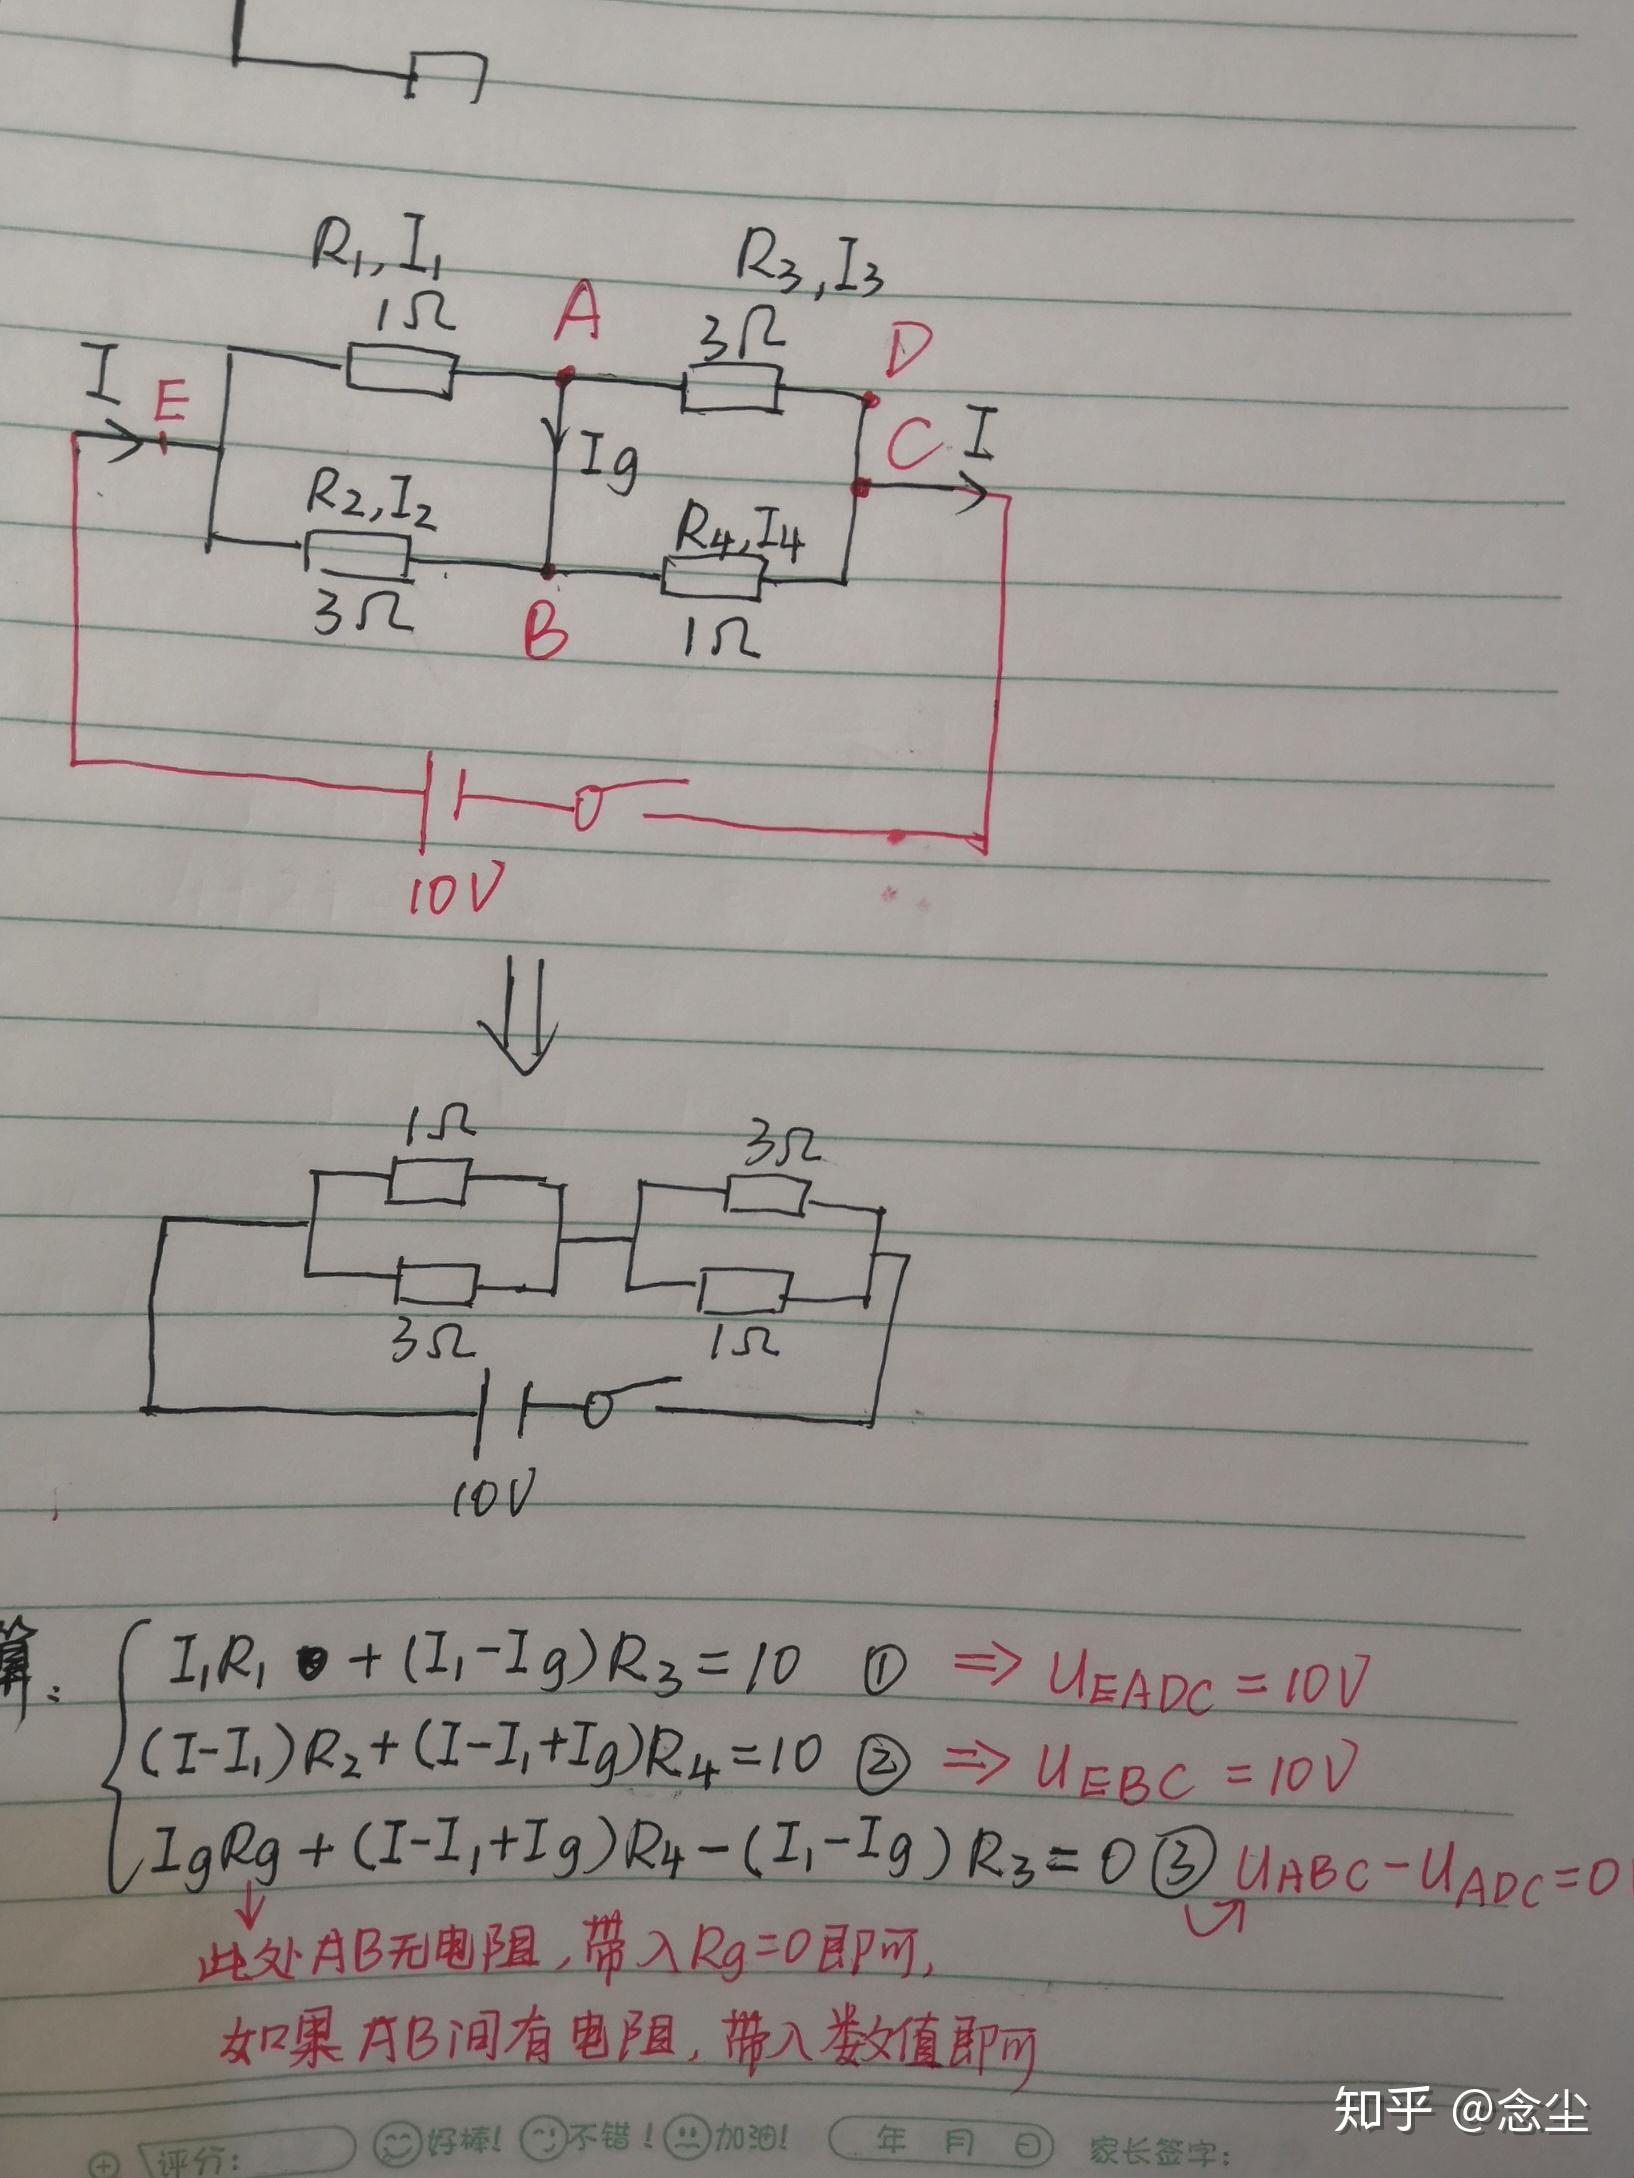 R₁, I₁
R₃, I₃
1Ω
A
3Ω
D
I
E
C
I
Ig
R₂, I₂
R₄, I₄
3Ω
B
1Ω
10V
1Ω
3Ω
3Ω
1Ω
10V
算: I₁R₁ + (I₁-Ig)R₃=10 ① ⇒ UEADC=10V
(I-I₁)R₂+(I-I₁+Ig)R₄=10 ② ⇒ UEBC=10V
IgRg+(I-I₁+Ig)R₄-(I₁-Ig)R₃=0 ③ UABC-UADC=0
此处AB无电阻,带入Rg=0即可,
如果AB间有电阻,带入数值即可
知乎 @念尘
评分: 好棒! 不错! 加油! 年 月 日 家长签字: